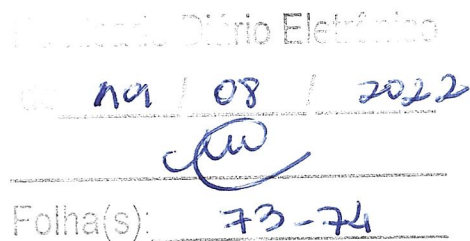 Diário Eletrônico
/ 08 / 2022
Folha(s): 73-74